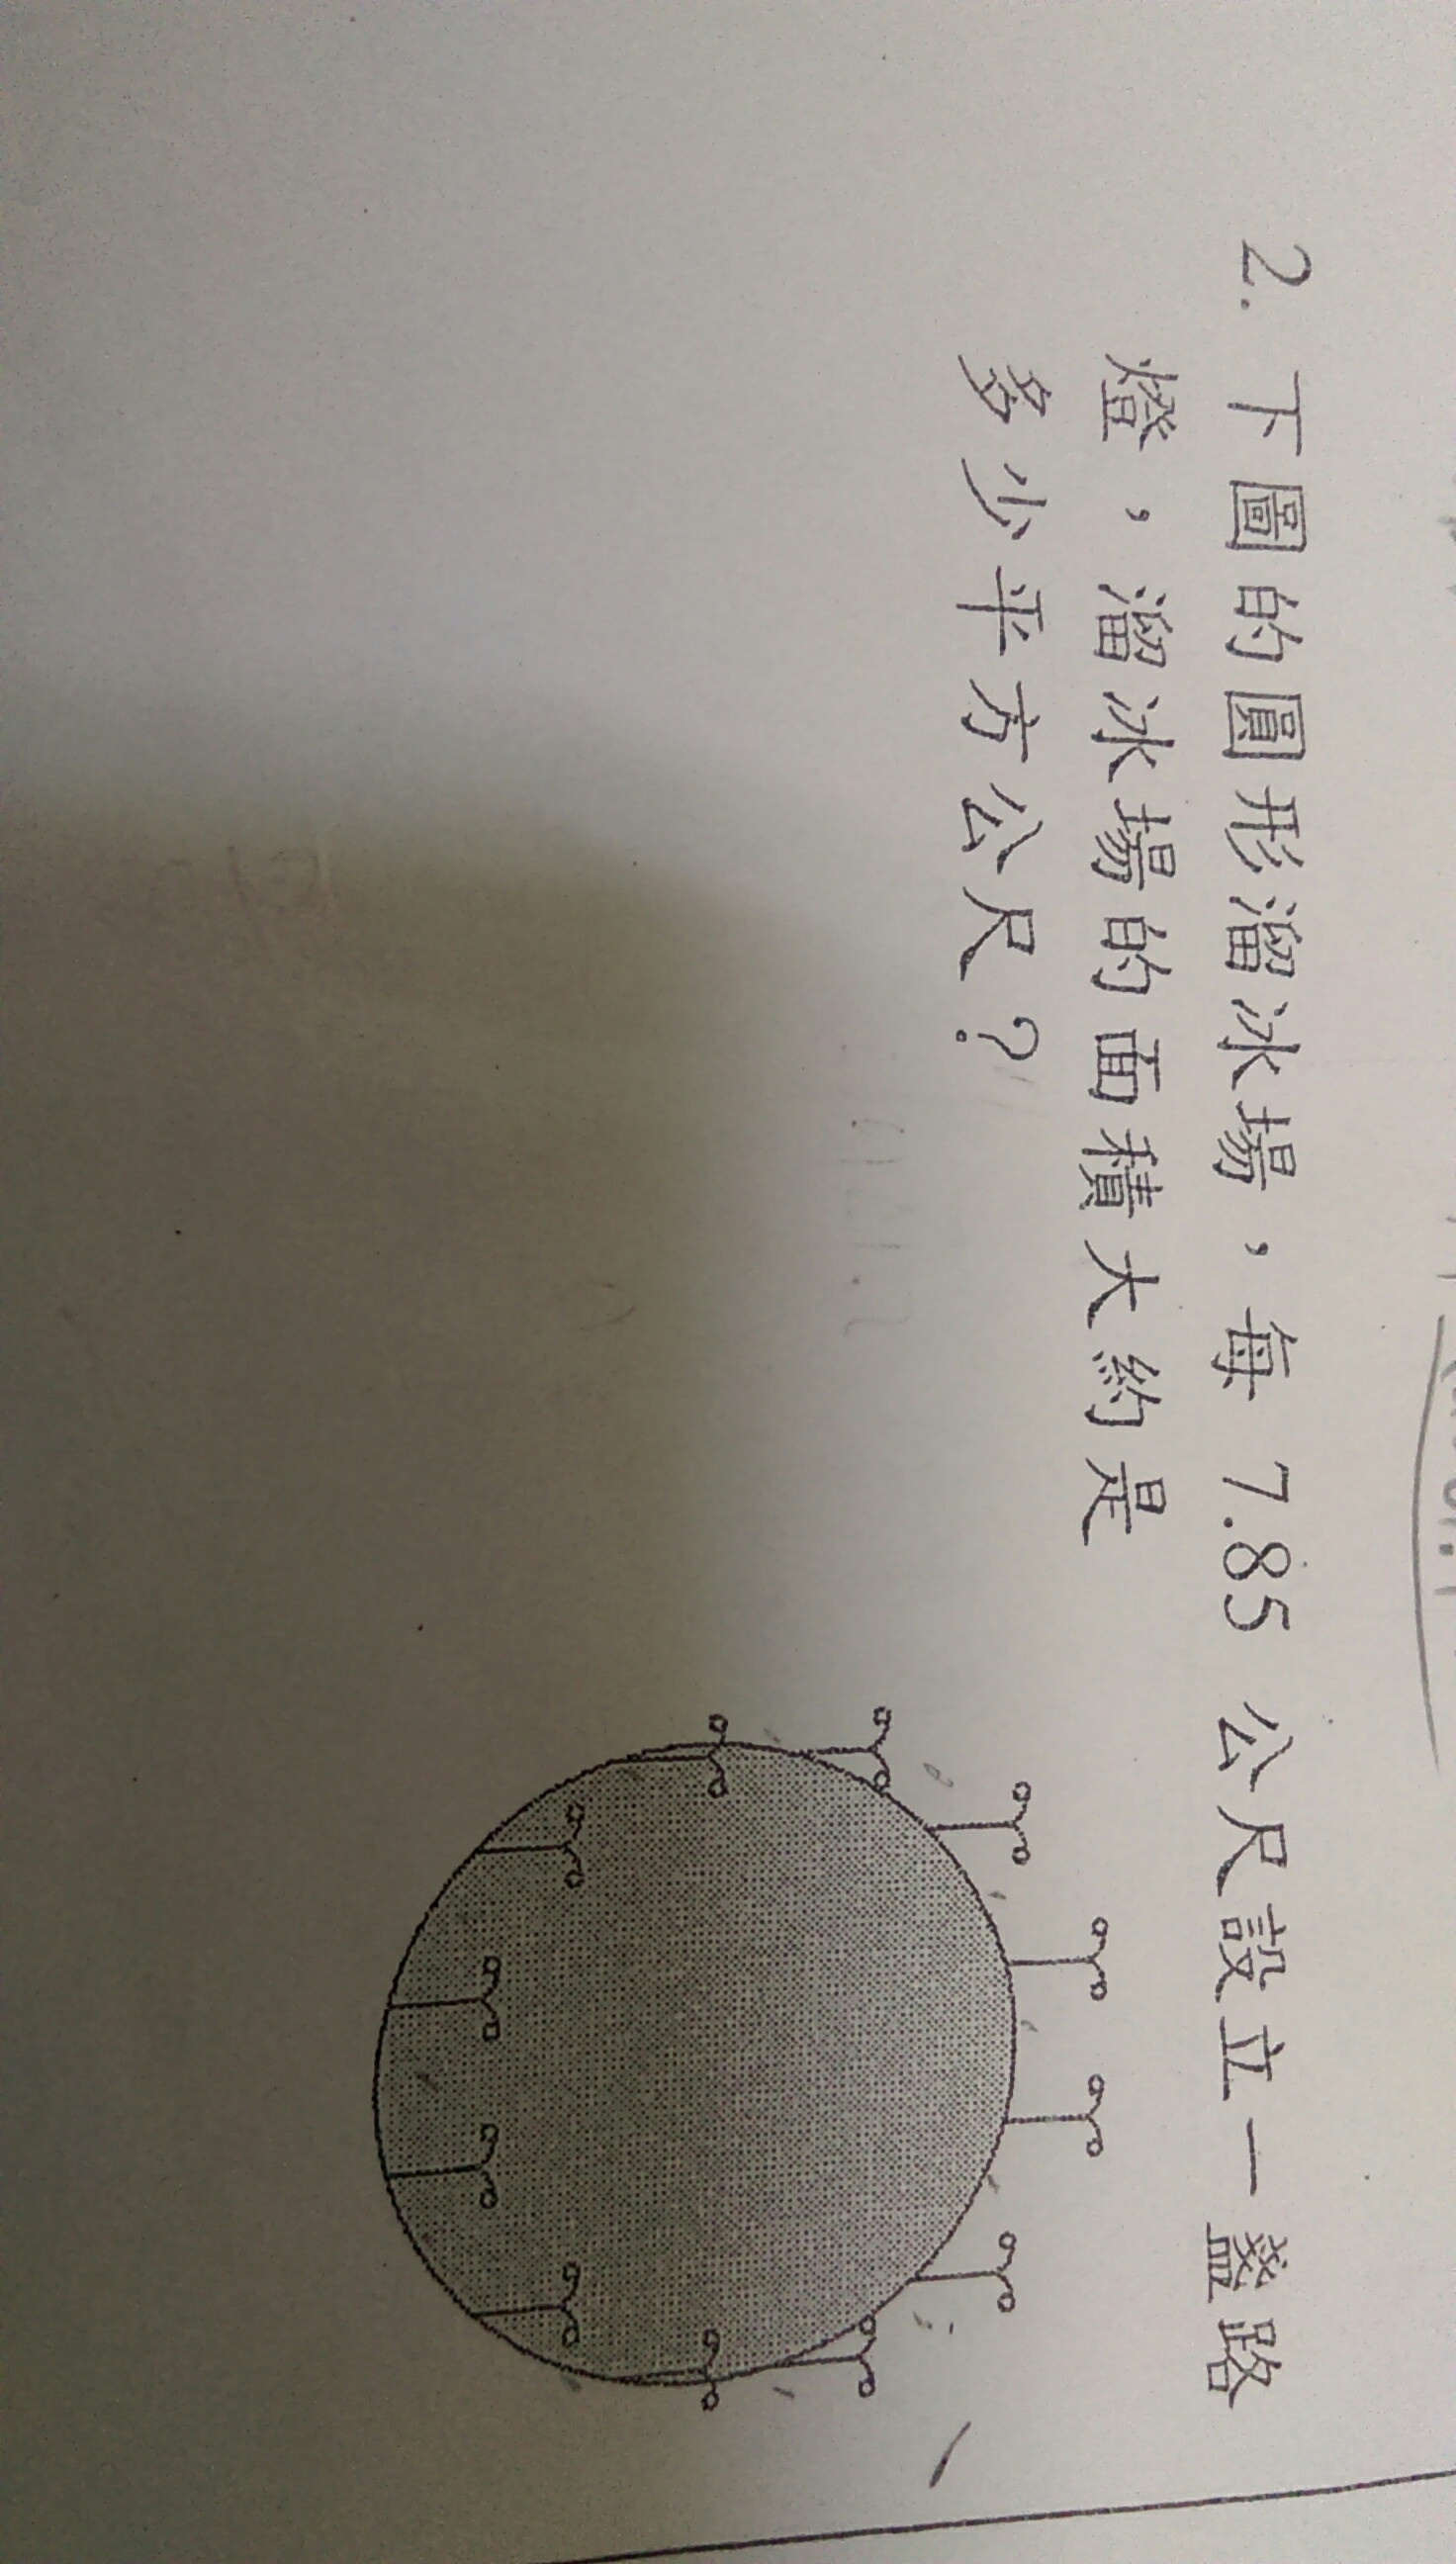 2. 下圖的圓形溜冰場，每 7.85 公尺設立一盞路
燈，溜冰場的面積大約是
多少平方公尺？